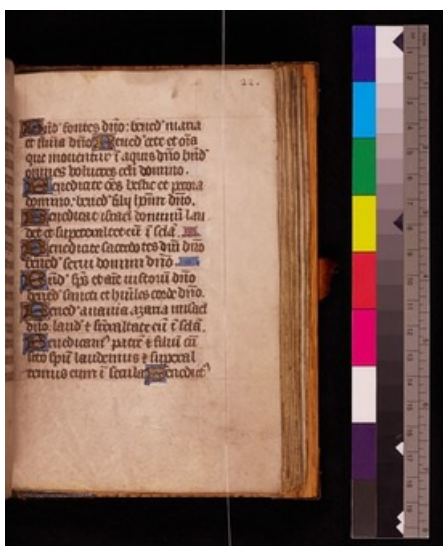 22.
Bn̄d' fontes dn̄o: bened' maria
et flūīa dn̄o Bened' cete et oīa
que mouentur ī aquis dn̄o bn̄d'
omnes uolucres celi domino.
Benedicite oēs bestie et pecora
domino: bened' filij hoīm dn̄o.
Benedicat israel dominum lau
det et superexaltet eū ī sēla.
Benedicite sacerdotes dn̄i dn̄o
bened' serui domini dn̄o.
Bn̄d' sp̄s et aīe iustorū dn̄o
bened' sancti et hūiles corde dn̄o.
Bened' anania azaria misael
dn̄o: laud' et sexaltate eū ī sēla.
Benedicam' patrē et filiū cū
sc̄o spū laudemus et superexal
temus eum ī secula Benedict'